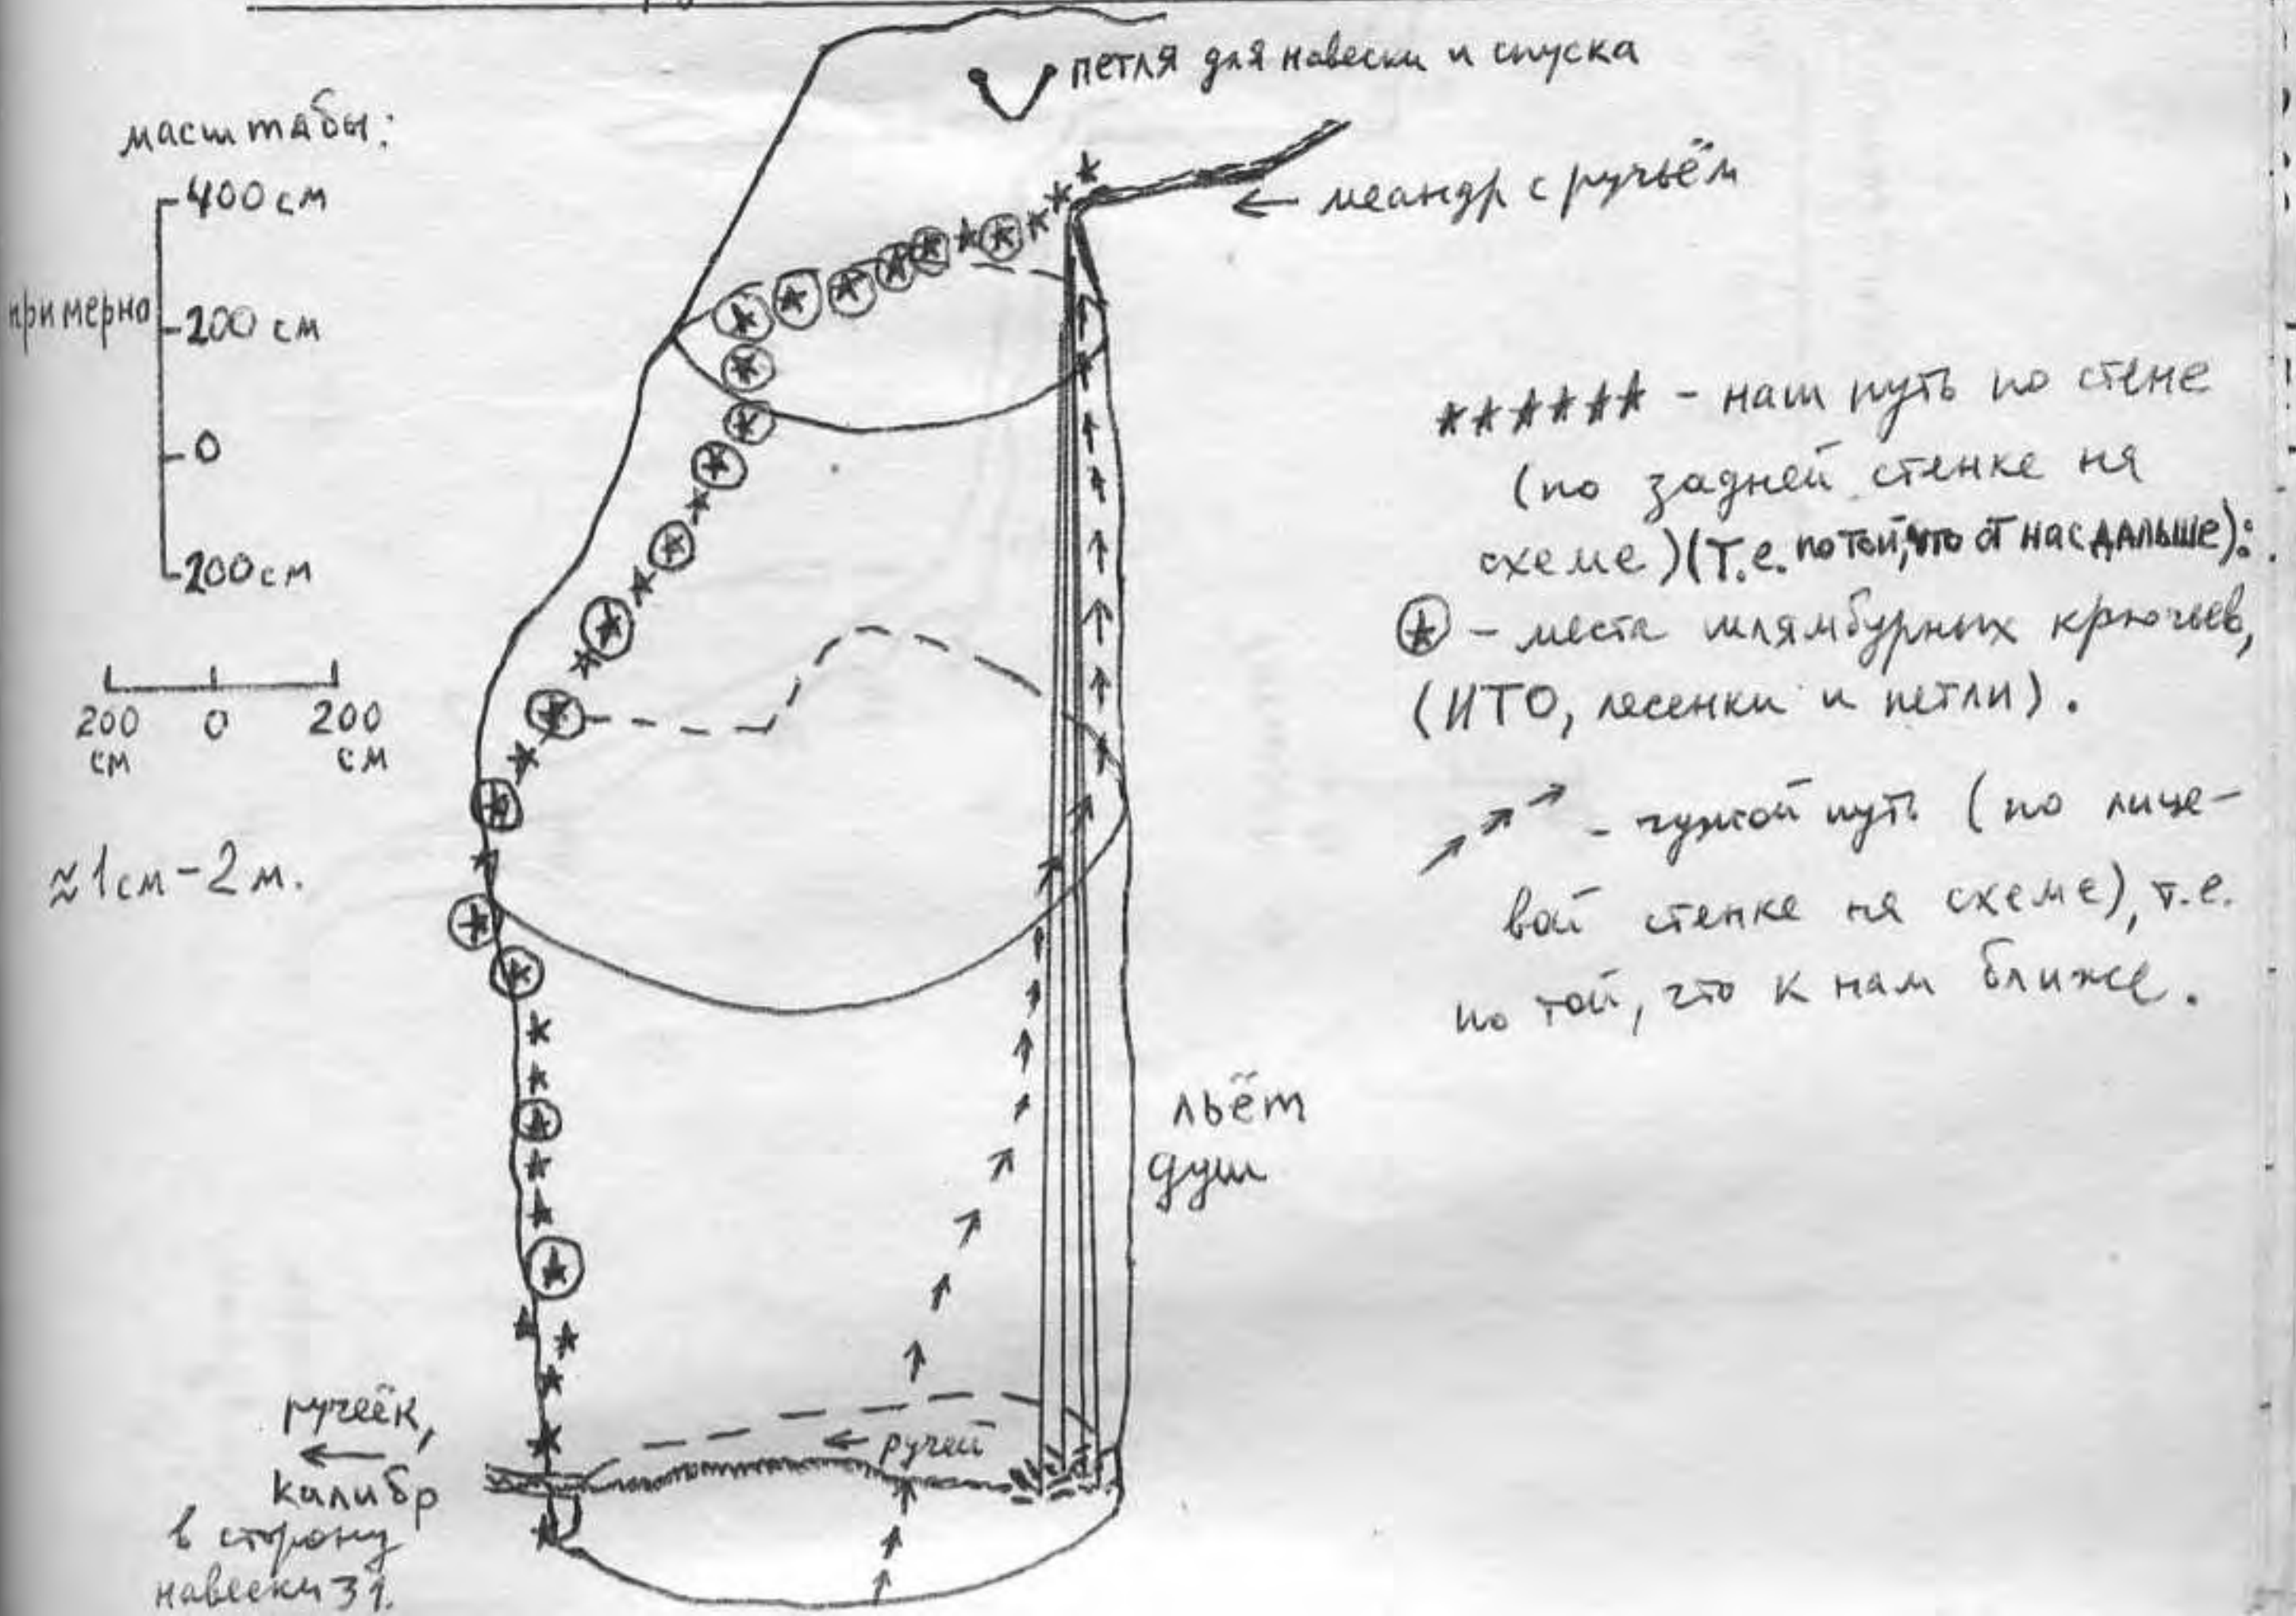 петля для навески и спуска
масштабы:
400 см
примерно
200 см
0
200 см
← меандр с ручьём
****** - наш путь по стене
(по задней стенке на
схеме) (т.е. по той, что от нас дальше):
- места шлямбурных крючьев,
(ИТО, лесенки и петли).
200 0 200
см см
≈ 1 см - 2 м.
→→→ - чужой путь (по лице-
вой стенке на схеме), т.е.
по той, что к нам ближе.
льёт
душ
ручеёк,
←
калибр
в сторону
навески 31.
← ручей